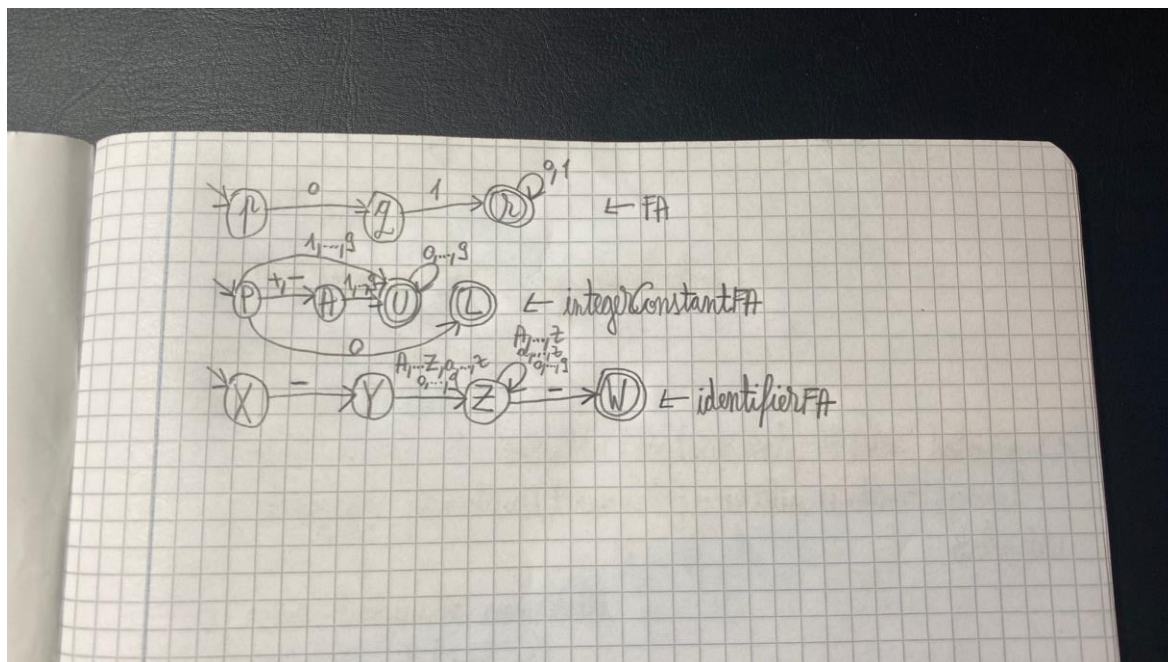 0 1 0,1
p q r ← FA
1,...,9 0,...,9
+,- 1,...,9
P A U L ← integerConstantFA
0
A,...Z,a,...,z
0,...,9
A,...,Z
a,...,z
0,...,9
_ _
X Y Z W ← identifierFA